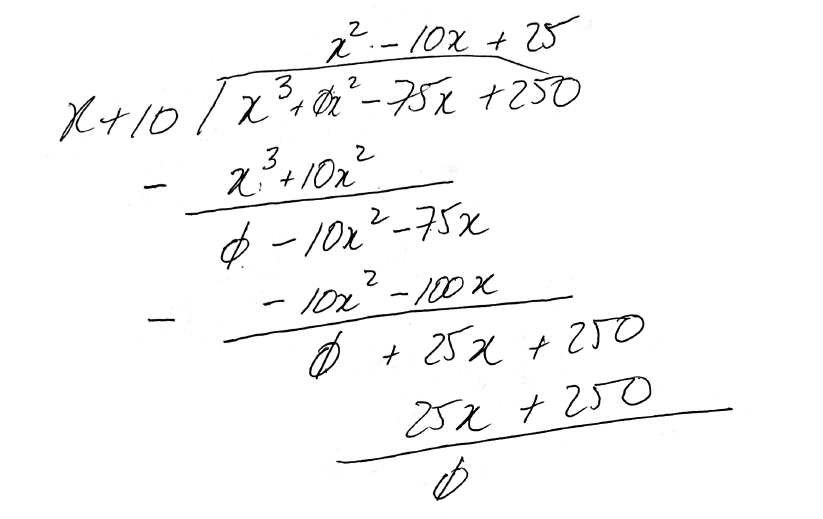 x² - 10x + 25
x+10 / x³ + 0x² - 75x + 250
- x³ + 10x²
0 - 10x² - 75x
- - 10x² - 100x
0 + 25x + 250
25x + 250
0